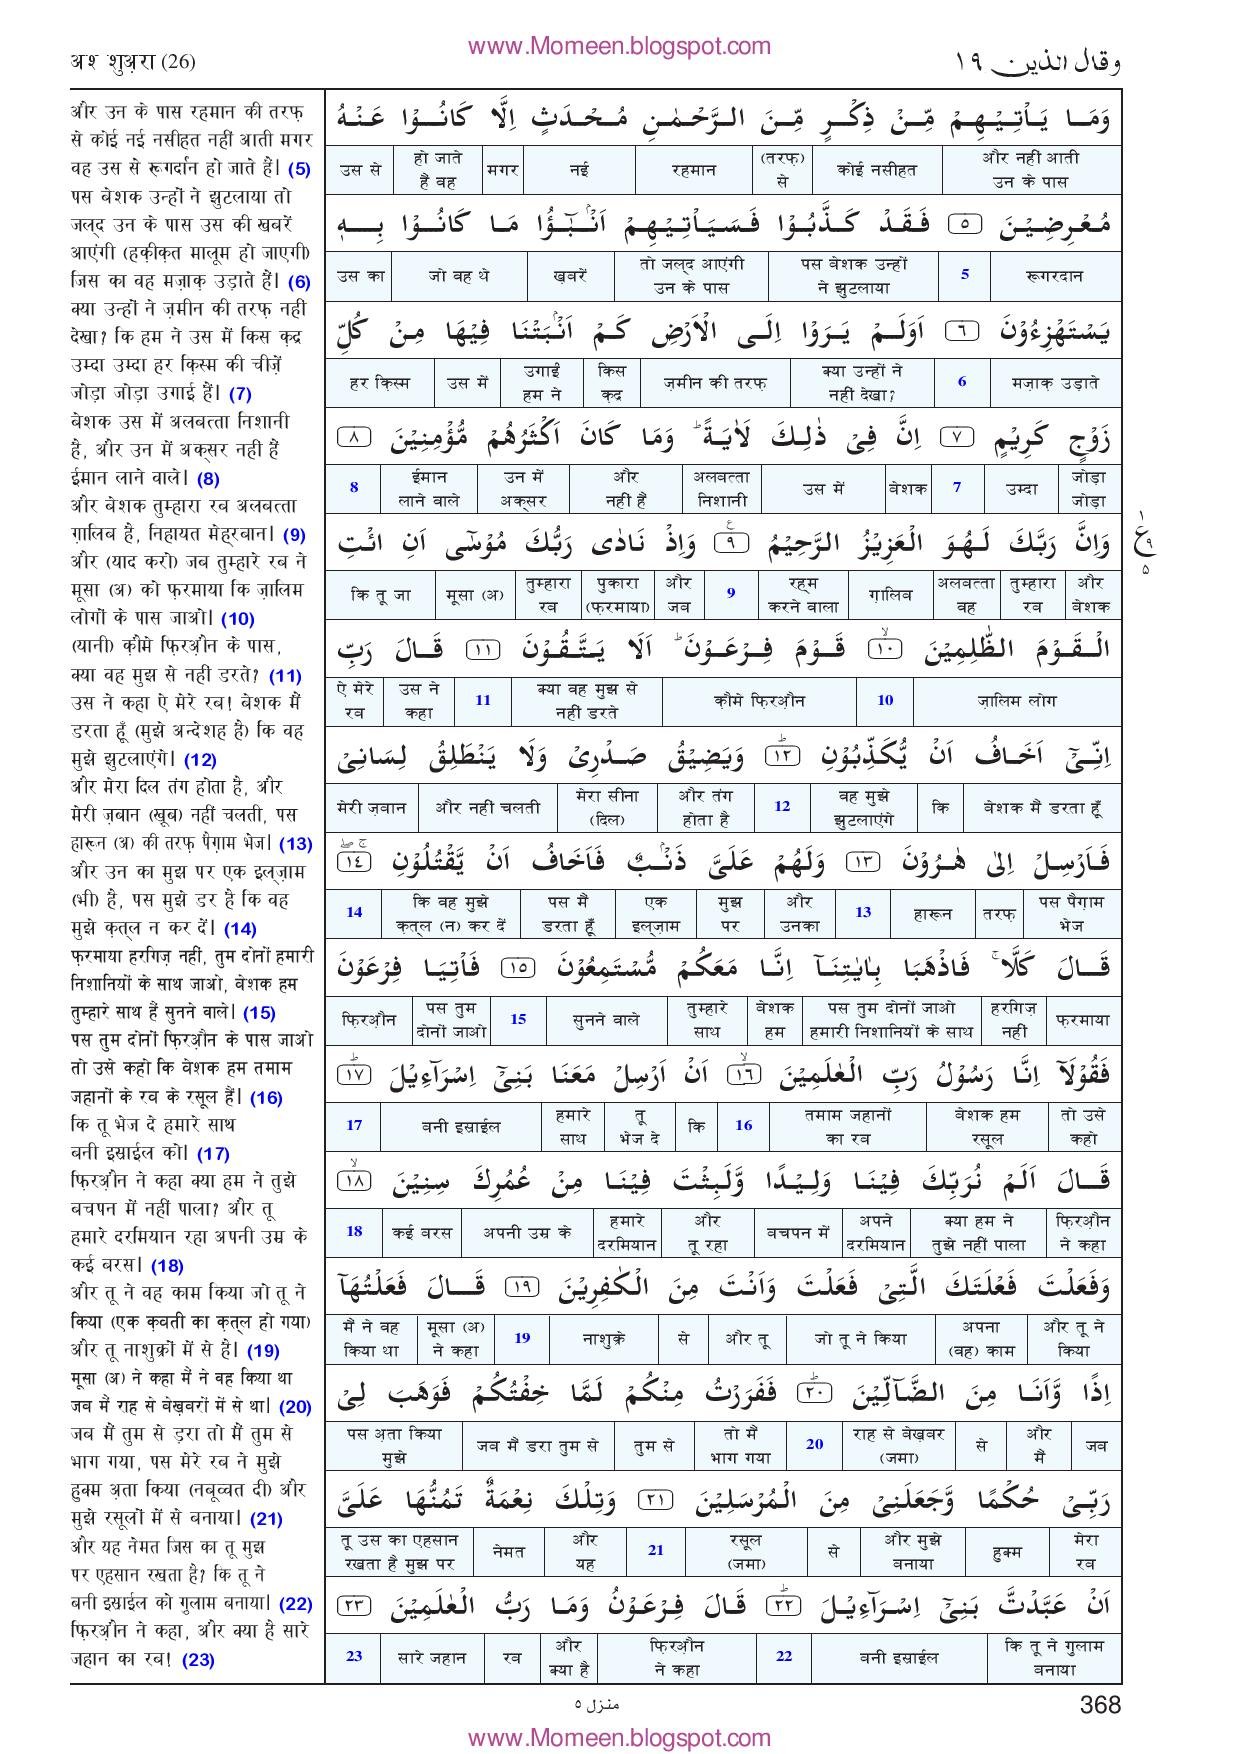 www.Momeen.blogspot.com
अश शुअ़रा (26)
وقال الذین ١٩
और उन के पास रहमान की तरफ़
से कोई नई नसीहत नहीं आती मगर
वह उस से रूगर्दान हो जाते हैं। (5)
पस बेशक उन्हों ने झुटलाया तो
जल्द उन के पास उस की ख़बरें
आएंगी (हक़ीक़त मालूम हो जाएगी)
जिस का वह मज़ाक़ उड़ाते हैं। (6)
क्या उन्हों ने ज़मीन की तरफ़ नहीं
देखा? कि हम ने उस में किस क़द्र
उम्दा उम्दा हर क़िस्म की चीज़ें
जोड़ा जोड़ा उगाई हैं। (7)
बेशक उस में अलबत्ता निशानी
है, और उन में अक्सर नहीं हैं
ईमान लाने वाले। (8)
और बेशक तुम्हारा रब अलबत्ता
ग़ालिब है, निहायत मेह्रबान। (9)
और (याद करो) जब तुम्हारे रब ने
मूसा (अ) को फ़रमाया कि ज़ालिम
लोगों के पास जाओ। (10)
(यानी) क़ौमे फ़िरऔ़न के पास,
क्या वह मुझ से नहीं डरते? (11)
उस ने कहा ऐ मेरे रब! बेशक मैं
डरता हूँ (मुझे अन्देशह है) कि वह
मुझे झुटलाएंगे। (12)
और मेरा दिल तंग होता है, और
मेरी ज़बान (ख़ूब) नहीं चलती, पस
हारून (अ) की तरफ़ पैग़ाम भेज। (13)
और उन का मुझ पर एक इल्ज़ाम
(भी) है, पस मुझे डर है कि वह
मुझे क़त्ल न कर दें। (14)
फ़रमाया हरगिज़ नहीं, तुम दोनों हमारी
निशानियों के साथ जाओ, बेशक हम
तुम्हारे साथ हैं सुनने वाले। (15)
पस तुम दोनों फ़िरऔ़न के पास जाओ
तो उसे कहो कि बेशक हम तमाम
जहानों के रब के रसूल हैं। (16)
कि तू भेज दे हमारे साथ
बनी इस्राईल को। (17)
फ़िरऔ़न ने कहा क्या हम ने तुझे
बचपन में नहीं पाला? और तू
हमारे दरमियान रहा अपनी उम्र के
कई बरस। (18)
और तू ने वह काम किया जो तू ने
किया (एक क़िबती का क़त्ल हो गया)
और तू नाशुक्रों में से है। (19)
मूसा (अ) ने कहा मैं ने वह किया था
जब मैं राह से बेख़बरों में से था। (20)
जब मैं तुम से डरा तो मैं तुम से
भाग गया, पस मेरे रब ने मुझे
हुक्म अ़ता किया (नबूव्वत दी) और
मुझे रसूलों में से बनाया। (21)
और यह नेमत जिस का तू मुझ
पर एहसान रखता है? कि तू ने
बनी इस्राईल को गुलाम बनाया। (22)
फ़िरऔ़न ने कहा, और क्या है सारे
जहान का रब! (23)
وَمَا يَأْتِيْهِمْ مِّنْ ذِكْرٍ مِّنَ الرَّحْمٰنِ مُحْدَثٍ اِلَّا كَانُوْا عَنْهُ
उस से | हो जाते हैं वह | मगर | नई | रहमान | (तरफ़) से | कोई नसीहत | और नहीं आती उन के पास
مُعْرِضِيْنَ ٥ فَقَدْ كَذَّبُوْا فَسَيَأْتِيْهِمْ اَنْۢبٰٓؤُا مَا كَانُوْا بِهٖ
उस का | जो वह थे | ख़बरें | तो जल्द आएंगी उन के पास | पस बेशक उन्हों ने झुटलाया | 5 | रूगरदान
يَسْتَهْزِءُوْنَ ٦ اَوَلَمْ يَرَوْا اِلَى الْاَرْضِ كَمْ اَنْۢبَتْنَا فِيْهَا مِنْ كُلِّ
हर क़िस्म | उस में | उगाईं हम ने | किस क़द्र | ज़मीन की तरफ़ | क्या उन्हों ने नहीं देखा? | 6 | मज़ाक़ उड़ाते
زَوْجٍ كَرِيْمٍ ٧ اِنَّ فِيْ ذٰلِكَ لَاٰيَةً ؕ وَمَا كَانَ اَكْثَرُهُمْ مُّؤْمِنِيْنَ ٨
8 | ईमान लाने वाले | उन में अक्सर | और नहीं हैं | अलबत्ता निशानी | उस में | बेशक | 7 | उम्दा | जोड़ा जोड़ा
وَاِنَّ رَبَّكَ لَهُوَ الْعَزِيْزُ الرَّحِيْمُ ٩ وَاِذْ نَادٰى رَبُّكَ مُوْسٰٓى اَنِ ائْتِ
कि तू जा | मूसा (अ) | तुम्हारा रब | पुकारा (फ़रमाया) | और जब | 9 | रह्म करने वाला | ग़ालिब | अलबत्ता वह | तुम्हारा रब | और बेशक
١ ع ٩ ٥
الْقَوْمَ الظّٰلِمِيْنَ ١٠ قَوْمَ فِرْعَوْنَ ؕ اَلَا يَتَّقُوْنَ ١١ قَالَ رَبِّ
ऐ मेरे रब | उस ने कहा | 11 | क्या वह मुझ से नहीं डरते | क़ौमे फ़िरऔ़न | 10 | ज़ालिम लोग
اِنِّيْٓ اَخَافُ اَنْ يُّكَذِّبُوْنِ ١٢ وَيَضِيْقُ صَدْرِيْ وَلَا يَنْطَلِقُ لِسَانِيْ
मेरी ज़बान | और नहीं चलती | मेरा सीना (दिल) | और तंग होता है | 12 | वह मुझे झुटलाएंगे | कि | बेशक मैं डरता हूँ
فَاَرْسِلْ اِلٰى هٰرُوْنَ ١٣ وَلَهُمْ عَلَيَّ ذَنْۢبٌ فَاَخَافُ اَنْ يَّقْتُلُوْنِ ١٤
14 | कि वह मुझे क़त्ल (न) कर दें | पस मैं डरता हूँ | एक इल्ज़ाम | मुझ पर | और उनका | 13 | हारून | तरफ़ | पस पैग़ाम भेज
قَالَ كَلَّا ۚ فَاذْهَبَا بِاٰيٰتِنَآ اِنَّا مَعَكُمْ مُّسْتَمِعُوْنَ ١٥ فَاْتِيَا فِرْعَوْنَ
फ़िरऔ़न | पस तुम दोनों जाओ | 15 | सुनने वाले | तुम्हारे साथ | बेशक हम | पस तुम दोनों जाओ हमारी निशानियों के साथ | हरगिज़ नहीं | फ़रमाया
فَقُوْلَآ اِنَّا رَسُوْلُ رَبِّ الْعٰلَمِيْنَ ١٦ اَنْ اَرْسِلْ مَعَنَا بَنِيْٓ اِسْرَآءِيْلَ ١٧
17 | बनी इस्राईल | हमारे साथ | तू भेज दे | कि | 16 | तमाम जहानों का रब | बेशक हम रसूल | तो उसे कहो
قَالَ اَلَمْ نُرَبِّكَ فِيْنَا وَلِيْدًا وَّلَبِثْتَ فِيْنَا مِنْ عُمُرِكَ سِنِيْنَ ١٨
18 | कई बरस | अपनी उम्र के | हमारे दरमियान | और तू रहा | बचपन में | अपने दरमियान | क्या हम ने तुझे नहीं पाला | फ़िरऔ़न ने कहा
وَفَعَلْتَ فَعْلَتَكَ الَّتِيْ فَعَلْتَ وَاَنْتَ مِنَ الْكٰفِرِيْنَ ١٩ قَالَ فَعَلْتُهَآ
मैं ने वह किया था | मूसा (अ) ने कहा | 19 | नाशुक्रे | से | और तू | जो तू ने किया | अपना (वह) काम | और तू ने किया
اِذًا وَّاَنَا مِنَ الضَّآلِّيْنَ ٢٠ فَفَرَرْتُ مِنْكُمْ لَمَّا خِفْتُكُمْ فَوَهَبَ لِيْ
पस अ़ता किया मुझे | जब मैं डरा तुम से | तुम से | तो मैं भाग गया | 20 | राह से बेख़बर (जमा) | से | और मैं | जब
رَبِّيْ حُكْمًا وَّجَعَلَنِيْ مِنَ الْمُرْسَلِيْنَ ٢١ وَتِلْكَ نِعْمَةٌ تَمُنُّهَا عَلَيَّ
तू उस का एहसान रखता है मुझ पर | नेमत | और यह | 21 | रसूल (जमा) | से | और मुझे बनाया | हुक्म | मेरा रब
اَنْ عَبَّدْتَّ بَنِيْٓ اِسْرَآءِيْلَ ٢٢ قَالَ فِرْعَوْنُ وَمَا رَبُّ الْعٰلَمِيْنَ ٢٣
23 | सारे जहान | रब | और क्या है | फ़िरऔ़न ने कहा | 22 | बनी इस्राईल | कि तू ने गुलाम बनाया
منزل ٥
368
www.Momeen.blogspot.com